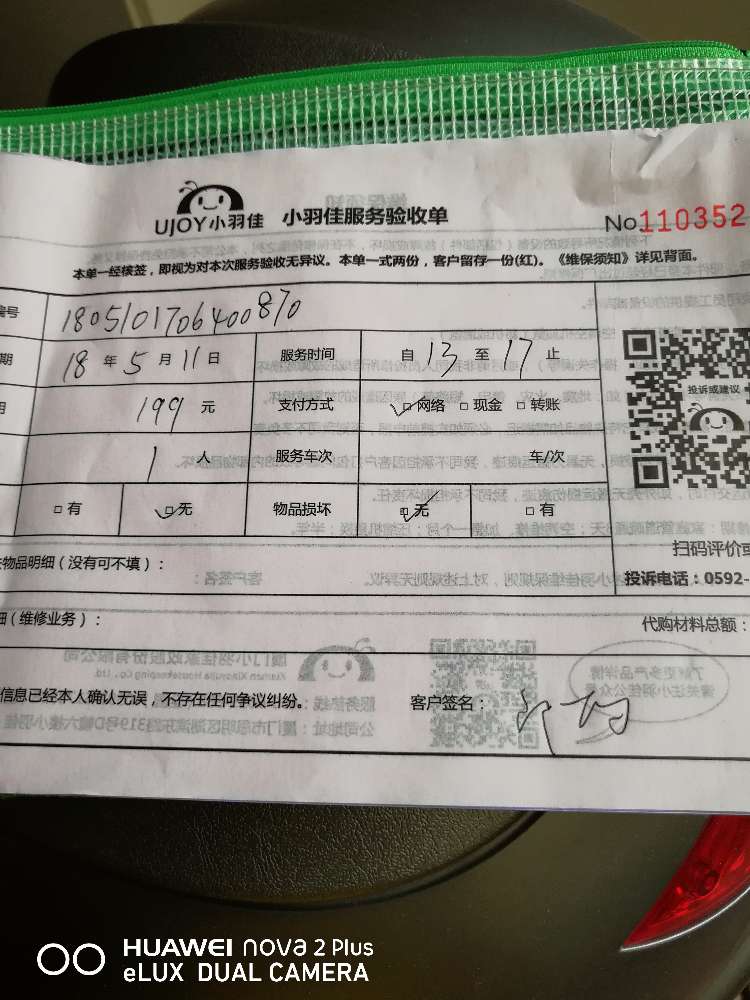 UJOY小羽佳 小羽佳服务验收单
No.110352
本单一经核签，即视为对本次服务验收无异议。本单一式两份，客户留存一份(红)。《维保须知》详见背面。
编号 1805101706400870
期 18 年 5 月 11 日 服务时间 自 13 至 17 止
199 元 支付方式 网络 现金 转账
投诉或建议
1 人 服务车次 车/次
有 无 物品损坏 无 有
物品明细（没有可不填）：
扫码评价或
投诉电话：0592-
细（维修业务）：
代购材料总额：
信息已经本人确认无误，不存在任何争议纠纷。 客户签名：
HUAWEI nova 2 Plus
eLUX DUAL CAMERA